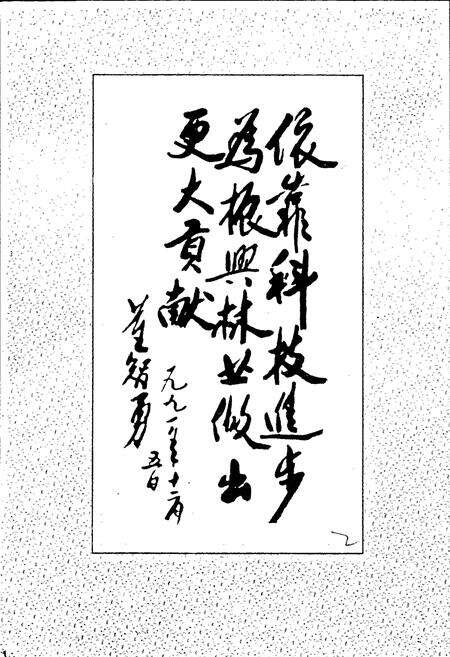 依靠科技進步
為振興林业做出
更大貢献
董智勇
一九九一年十二月
五日